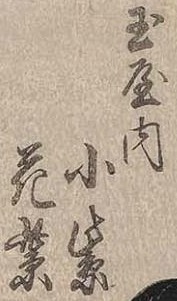 玉屋内
小紫
花紫